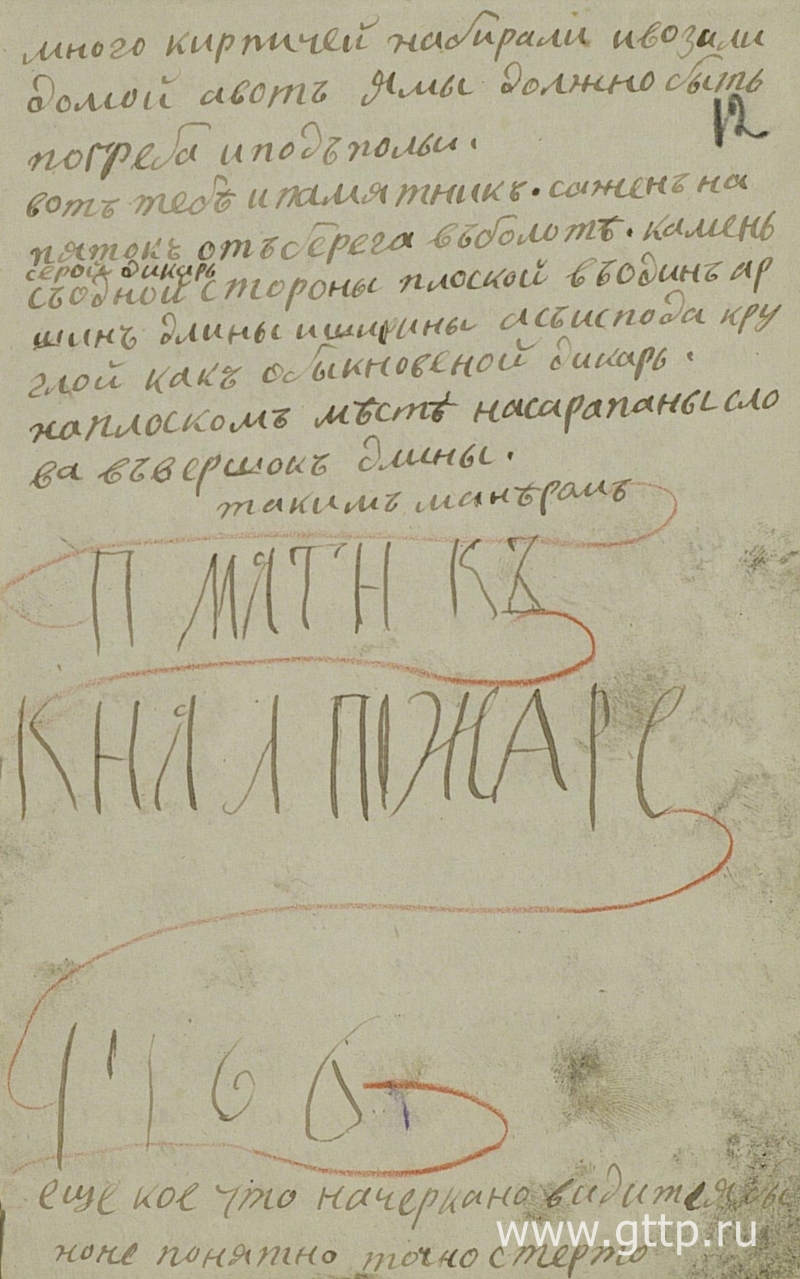 много кирпичей набирали ивозили
домой авотъ Ямы должно быть
12
погреба иподъполы.
вотъ тебѣ ипамятникъ. саженъ на
пятокъ отъберега въболотѣ. камень
серой дикарь
съодной стороны плоской въодинъ ар
шинъ длины иширины асъиспода кру
глой какъ обыкновеной дикарь.
наплоскомъ мѣстѣ насарапаны сло
ва въвершокъ длины.
такимъ манѣромъ
П МЯТН КЪ
КНЯ Л ПОЖАРС
еще кое что начеркано видите
ноне понятно точно стерто
www.gttp.ru